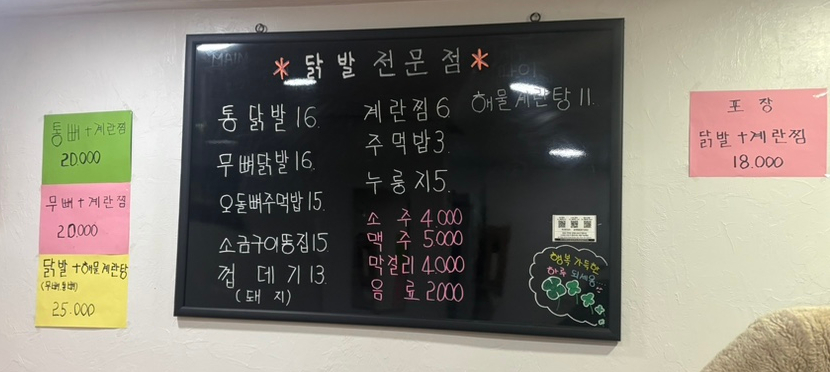 통뼈+계란찜
20.000
무뼈+계란찜
20.000
닭발+해물계란탕
25.000
* 닭발전문점 *
통닭발 16.
무뼈닭발 16.
오돌뼈주먹밥 15.
소금구이똥집 15.
껍데기 13.
(돼지)
계란찜 6.
주먹밥 3.
누룽지 5.
해물계란탕 11.
소주 4.000
맥주 5000
막걸리 4.000
음료 2000
행복 가득한
하루 되세용
포장
닭발+계란찜
18.000